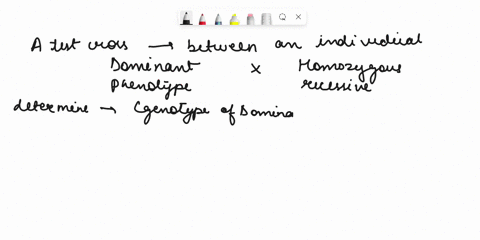 A test cross → between an individual
Dominant x Homozygous
Phenotype recessive
determine → Genotype of Domina